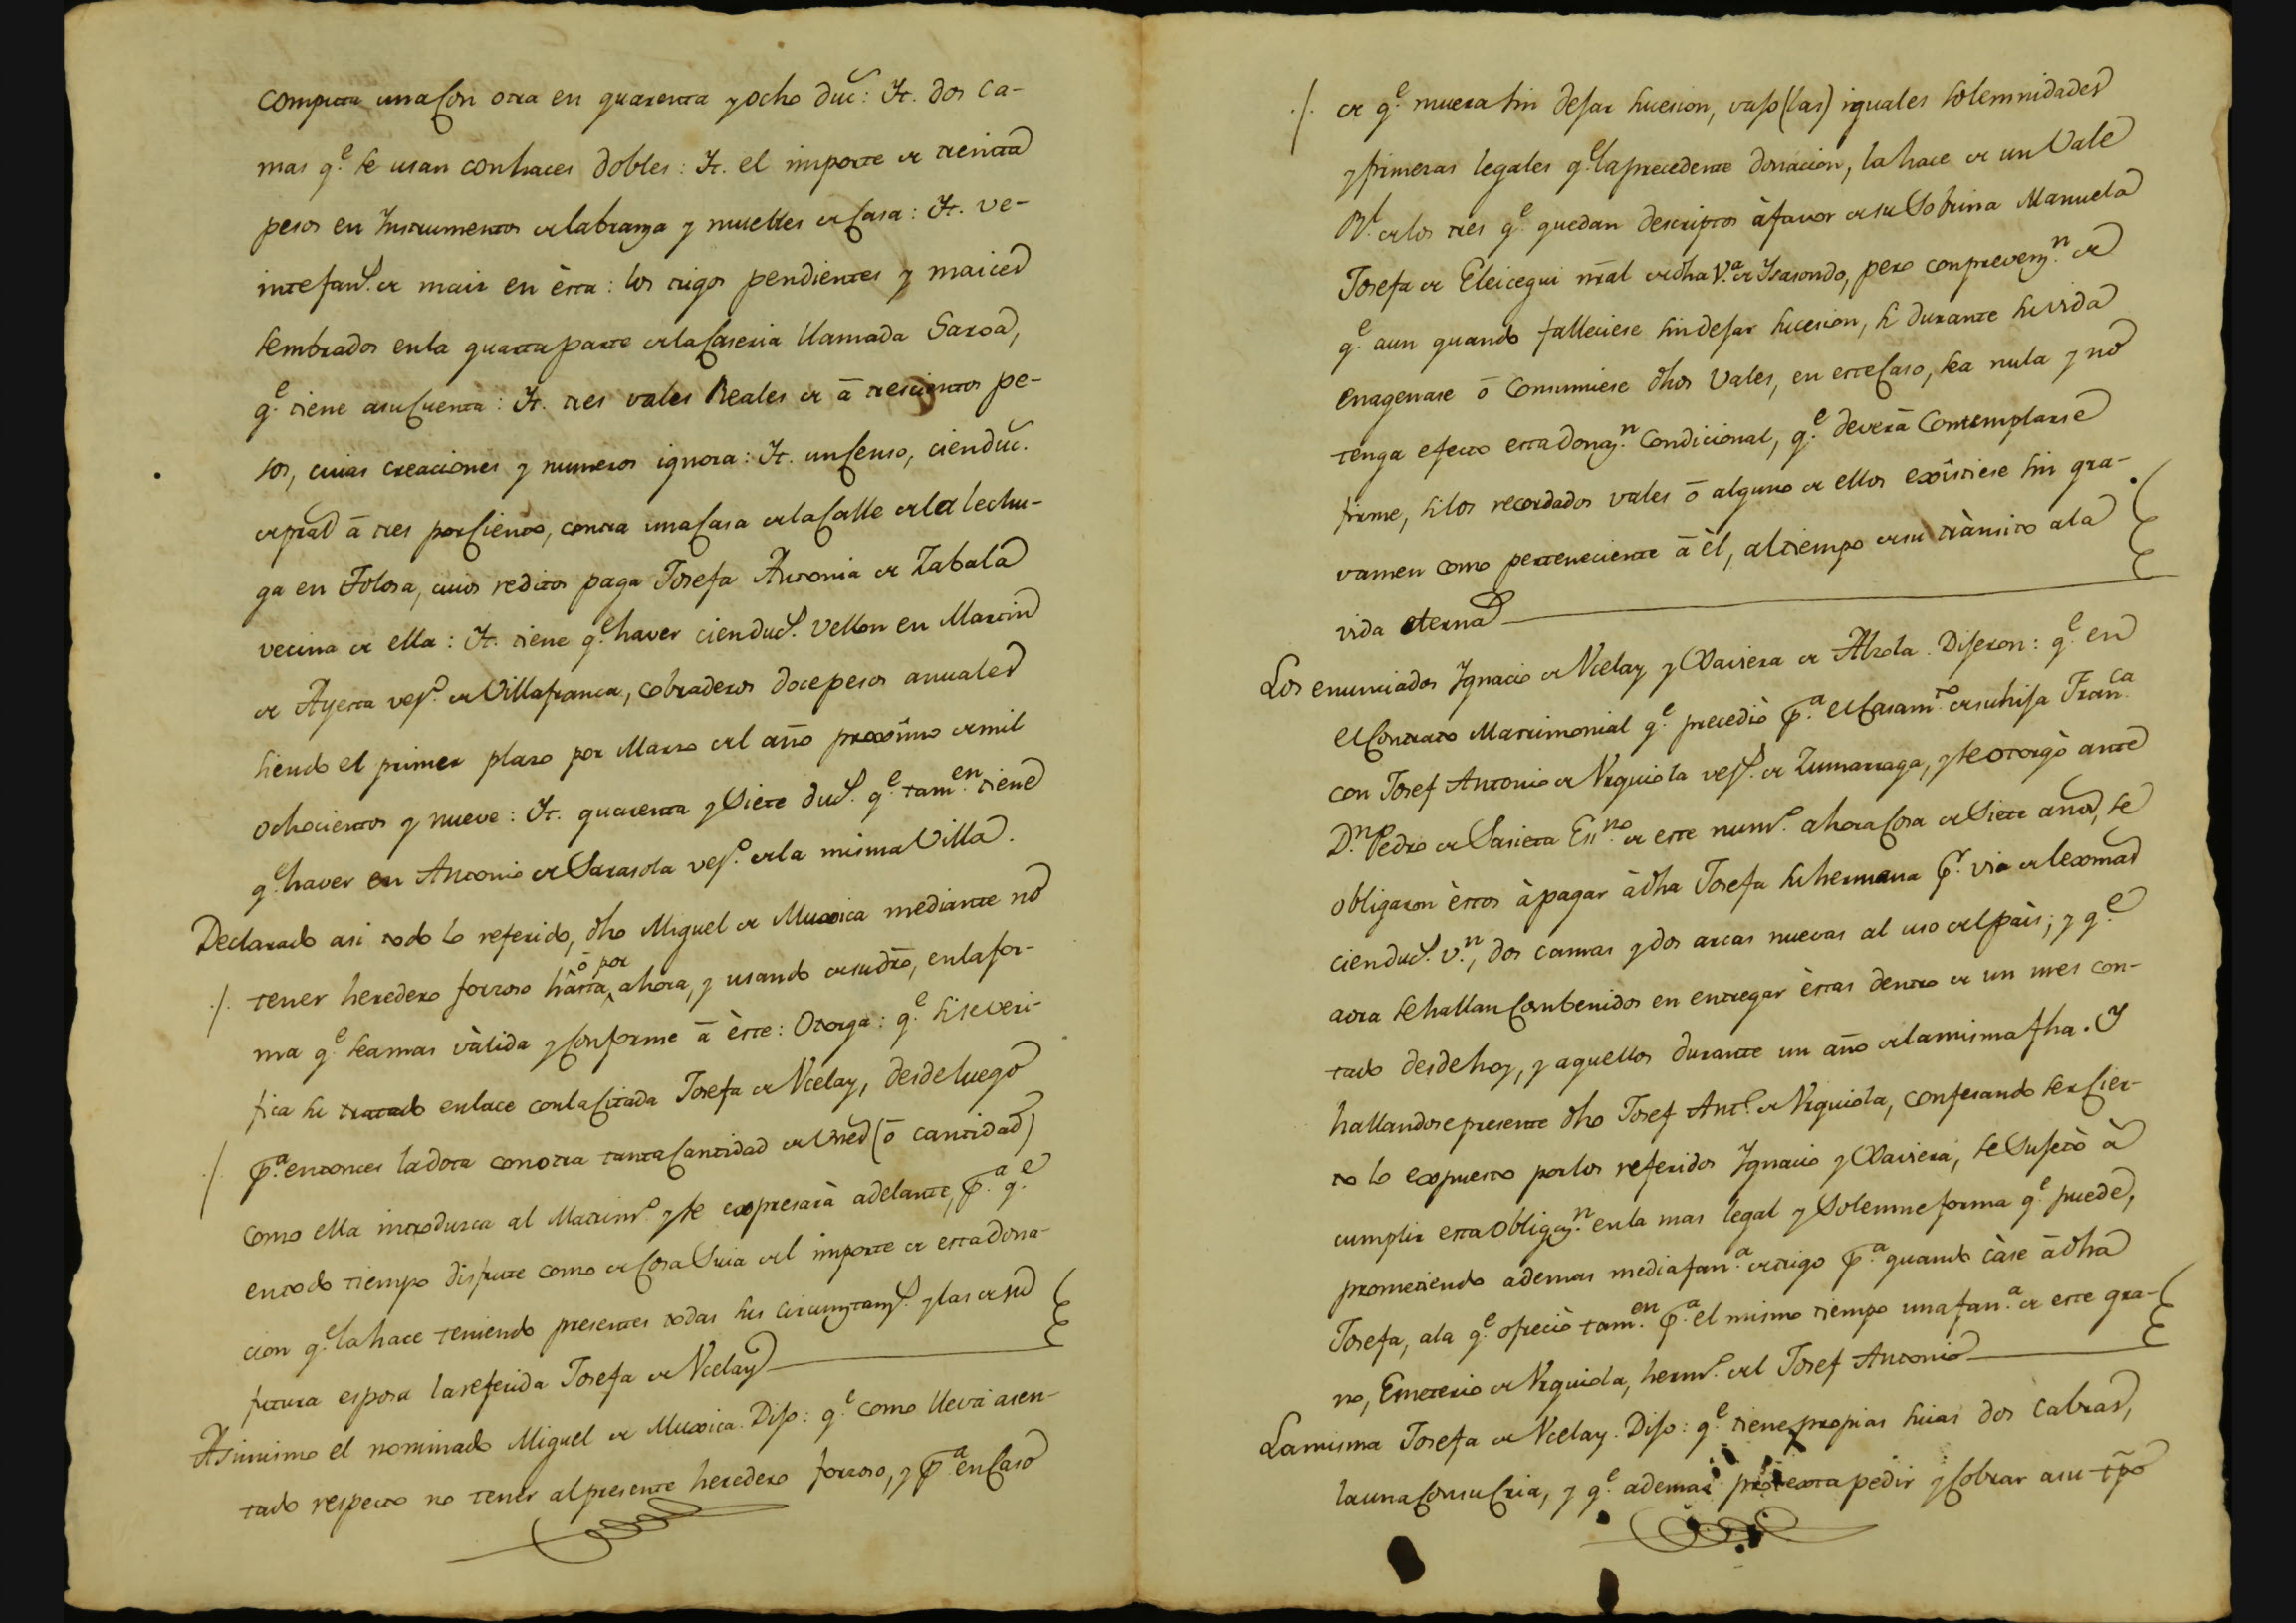 computa una con otra en quarenta y ocho duc.: Yt. dos ca-
mas q.e se usan con haces dobles: Yt. el importe de treinta
pesos en Instrumentos de labranza y muebles de Casa: Yt. ve-
inte fan.s de maiz en èsta: los trigos pendientes y maices
sembrados en la quarta parte de la Caseria llamada Saroa,
q.e tiene a su Cuenta: Yt. tres vales Reales de à trescientos pe-
sos, cuias creaciones y numeros ignora: Yt. un Censo, cien duc.
de pral à tres por Ciento, contra una Casa de la Calle de la lechu-
ga en Tolosa, cuios reditos paga Josefa Antonia de Zabala
vecina de ella: Yt. tiene q.e haver cien duc.s vellon en Martin
de Ayesta vez.o de Villafranca, cobraderos doce pesos anuales
siendo el primer plazo por Marzo del año proxîmo de mil
ochocientos y nueve: Yt. quarenta y Siete duc.s q.e tam.en tiene
q.e haver en Antonio de Sarasola vez.o de la misma Villa.
Declarado asi todo lo referido, dho Miguel de Muxica mediante no
./. tener heredero forzoso hàsta ò por ahora, y usando de su dro, en la for-
ma q.e sea mas vàlida y conforme à èste: Otorga: q.e si se veri-
fica su tratado enlace con la Citada Josefa de Ucelay, desde luego
./ p.a entonces la dota con otra tanta Cantidad de Vned (ò cantidad)
como ella introduzca al Matrim.o y se expresarà adelante, p.a q.e
en todo tiempo disfrute como de Cosa Suia del importe de esta dona-
cion q.e la hace teniendo presentes todas sus circunstanc.s y las de su
futura esposa la referida Josefa de Ucelay
Asimismo el nominado Miguel de Muxica. Dijo: q.e como lleva asen-
tado respecto no tener al presente heredero forzoso, y p.a en Caso
./. de q.e muera sin dejar sucesion, vajo (las) iguales solemnidades
y primeras legales q.e la precedente donacion, la hace de un Vale
R.l de los tres q.e quedan descriptos à favor de su Sobrina Manuela
Josefa de Eleicegui nral de dha V.a de Ysasondo, pero con prevenz.n de
q.e aun quando falleciese sin dejar sucesion, si durante su vida
enagenase ò Consumiese dhos Vales, en este Caso, sea nula y no
tenga efecto esta donaz.n Condicional, q.e deverà Contemplarse
firme, si los recordados vales ò alguno de ellos exîstiese sin gra-
vamen como perteneciente à èl, al tiempo de su trànsito a la
vida eterna
Los enunciados Ygnacio de Ucelay y Xaviera de Alzola. Dijeron: q.e en
el Contrato Matrimonial q.e precediò p.a el Casam.to de su hija Fran.ca
con Josef Antonio de Urquiola vez.o de Zumarraga, y se otorgò ante
D.n Pedro de Sasieta Es.no de este num.o ahora Cosa de Siete años, se
obligaron èstos à pagar à dha Josefa su hermana p.r via de lexma
cien duc.s v.n, dos camas y dos arcas nuevas al uso del pàis; y q.e
aora se hallan Combenidos en entregar èstas dentro de un mes con-
tado desde hoy, y aquellos durante un año de la misma fha. Y
hallandose presente dho Josef Ant.o de Urquiola, confesando ser Cier-
to lo expuesto por los referidos Ygnacio y Xaviera, se Sujetò à
cumplir esta obligaz.n en la mas legal y Solemne forma q.e puede,
prometiendo ademas media fan.a de trigo p.a quando càse à dha
Josefa, a la q.e ofreciò tam.en p.a el mismo tiempo una fan.a de este gra-
no, Emeterio de Urquiola, herm.o del Josef Antonio
La misma Josefa de Ucelay. Dijo: q.e tiene propias suias dos Cabras,
la una Con su Cria, y q.e ademas protexta pedir y Cobrar a su tpo